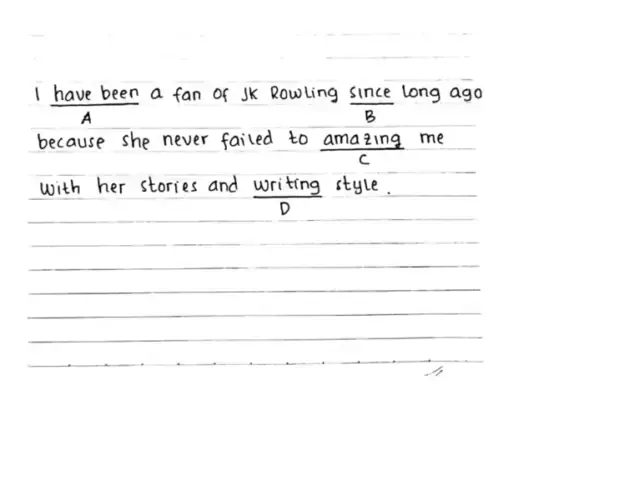 I have been a fan of JK Rowling since long ago
A B
because she never failed to amazing me
C
with her stories and writing style.
D